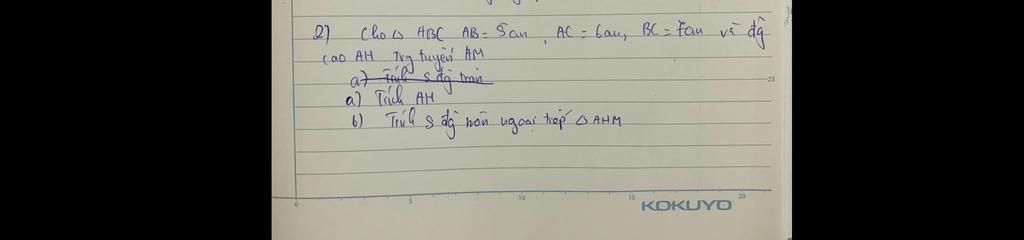 2) Cho △ ABC AB = 5cm, AC = 6cm, BC = 7cm và đg
cao AH Trg tuyến AM
a) Tính S đg tròn
25
a) Tính AH
b) Tính S đg tròn ngoại tiếp △ AHM
0 5 10 15 20
KOKUYO